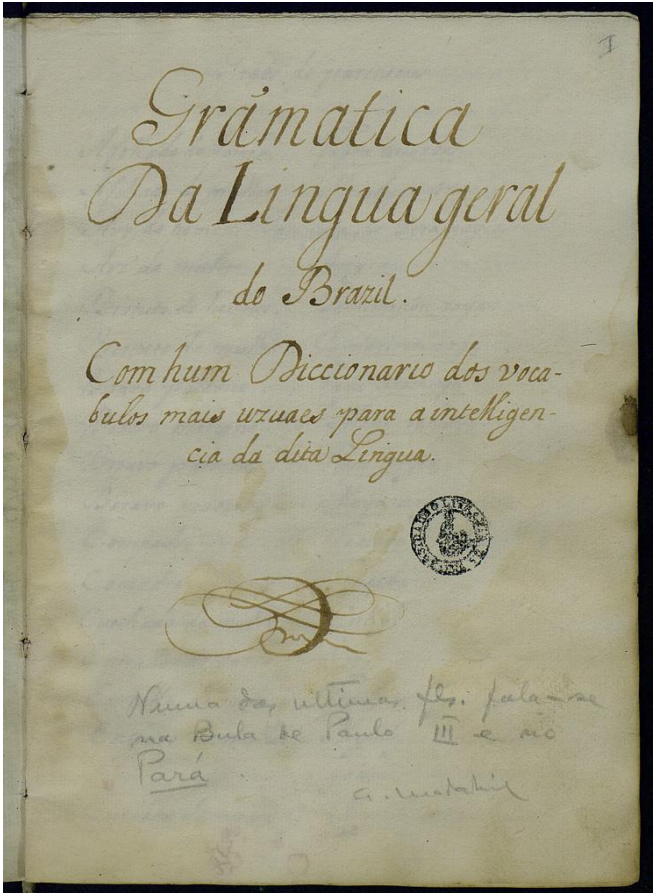 I
Grámatica
Da Lingua geral
do Brazil.
Com hum Diccionario dos voca-
bulos mais uzuaes para a intelligen-
cia da dita Lingua.
Numa das ultimas fls. fala-se
na Bula de Paulo III e no
Pará